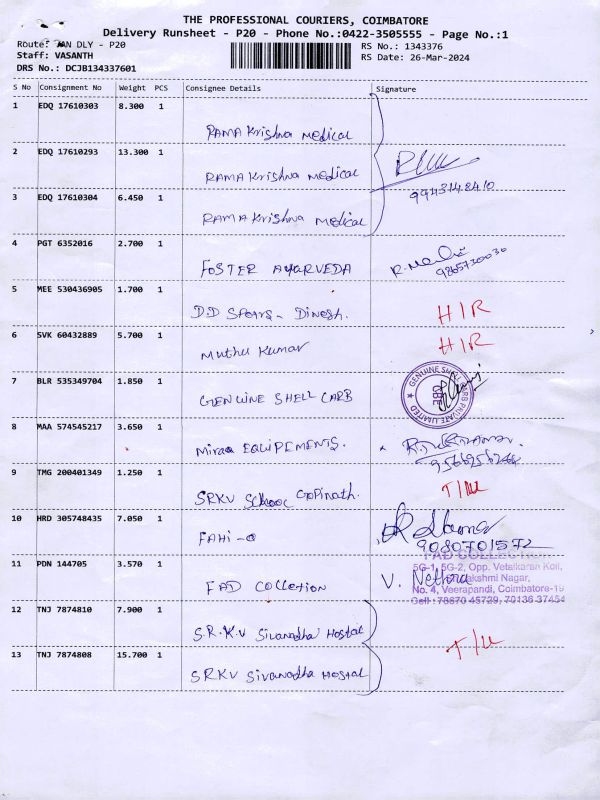 THE PROFESSIONAL COURIERS, COIMBATORE
Delivery Runsheet - P20 - Phone No.:0422-3505555 - Page No.:1
Route: DLY - P20
RS No.: 1343376
Staff: VASANTH
RS Date: 26-Mar-2024
DRS No.: DCJB134337601
S No Consignment No Weight PCS Consignee Details Signature
1 EDQ 17610303 8.300 1
RAMA Krishna Medical
2 EDQ 17610293 13.300 1
RAMA Krishna Medical
9943148410
3 EDQ 17610304 6.450 1
RAMA Krishna Medical
4 PGT 6352016 2.700 1
FOSTER AYURVEDA
9865730030
5 MEE 530436905 1.700 1
D.D Spares - Dinesh.
H/R
6 SVK 60432889 5.700 1
Muthu Kumar
H/R
7 BLR 535349704 1.850 1
GENUINE SHELL CARB
GENUINE SHELL CARB PRIVATE LIMITED
CBE
8 MAA 574545217 3.650 1
EQUIPEMENTS.
9 TMG 200401349 1.250 1
SRKV School Gopinath.
T/U
10 HRD 305748435 7.050 1
FAHI-O
9080701572
11 PDN 144705 3.570 1
FAD Colletion
V. Nethra
FAD COLLECTION
5G-1, 5G-2, Opp. Vetaikaran Koil,
Lakshmi Nagar,
No. 4, Veerapandi, Coimbatore-19
Cell : 78870 45729, 70136 37454
12 TNJ 7874810 7.900 1
S.R.K.V Sivanadha Hostal
T/U
13 TNJ 7874808 15.700 1
SRKV Sivanadha Hostal